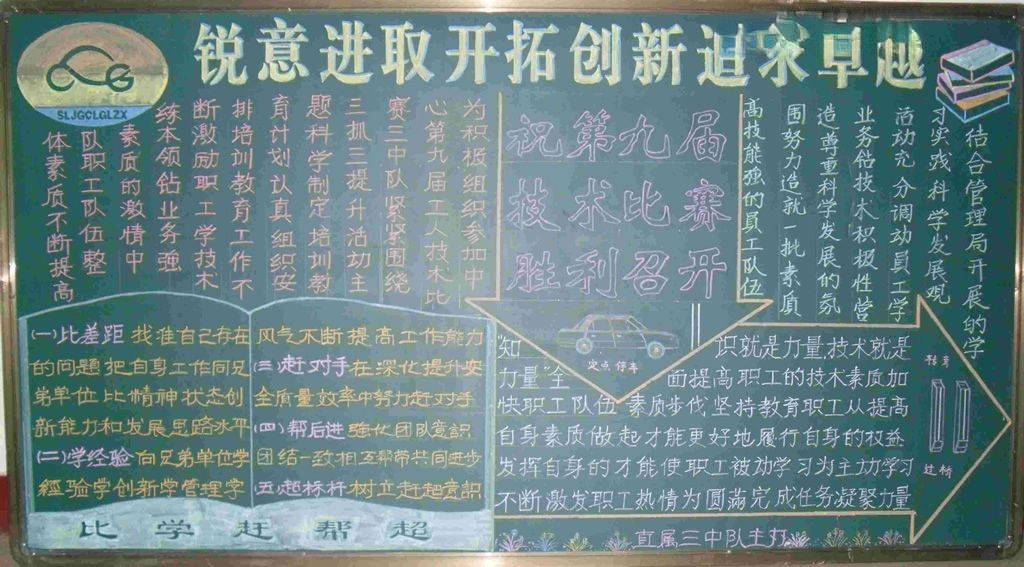 锐意进取开拓创新追求卓越
SLJGCLGLZX
为积极组织参加中
心第九届工人技术比
赛三中队紧紧围绕
三抓三提升活动主
题科学制定培训教
育计划认真组织安
排培训教育工作不
断激励职工学技术
练本领钻业务强
素质的激情中
队职工队伍整
体素质不断提高
祝第九届
技术比赛
胜利召开
结合管理局开展的学
习实践科学发展观
活动充分调动員工学
业务钻技术积极性营
造尊重科学发展的氛
围努力造就一批素质
高技能强的員工队伍
(一)比差距 找准自己存在
的问题把自身工作同兄
弟单位比精神状态创
新能力和发展思路水平
(二)学经验 向兄弟单位学
經验学创新学管理学
风气不断提高工作能力
(三)赶对手在深化提升安
全质量效率中努力赶对手
(四)帮后进 强化团队意識
团结一致相互帮带共同进步
(五)超标杆 树立赶超意識
比学赶帮超
定点停车
"知识就是力量,技术就是
力量"全面提高职工的技术素质加
快职工队伍素质步伐坚持教育职工从提高
自身素质做起才能更好地履行自身的权益
发挥自身的才能使职工被动学习为主动学习
不断激发职工热情为圆满完成任务凝聚力量
移库
过桥
直属三中队主办